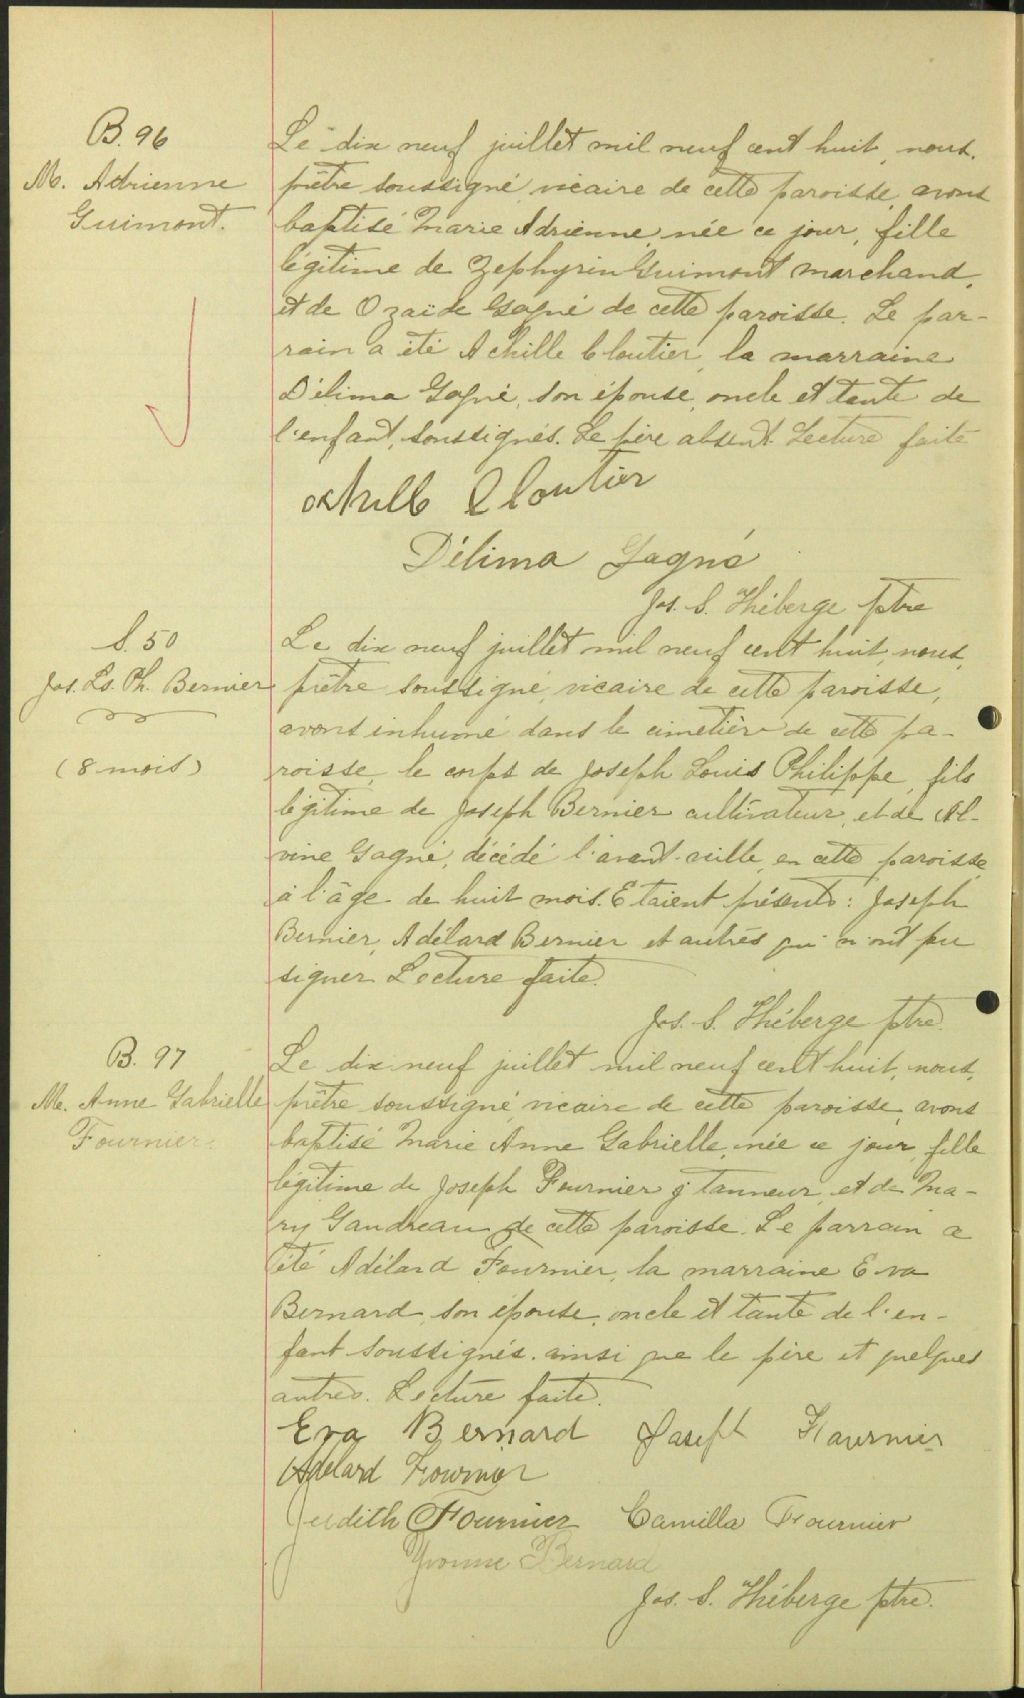 B. 96
M. Adrienne
Guimont.
Le dix neuf juillet mil neuf cent huit, nous,
prêtre soussigné, vicaire de cette paroisse, avons
baptisé Marie Adrienne, née ce jour, fille
légitime de Zephyrin Guimont marchand,
et de Ozaïde Gagné de cette paroisse. Le par-
rain a été Achille Cloutier, la marraine
Délima Gagné, son épouse, oncle et tante de
l'enfant, soussignés. Le père absent. Lecture faite
Achille Cloutier
Délima Gagné
Jos. S. Théberge ptre
S. 50
Jos. Ls. Ph. Bernier
(8 mois)
Le dix neuf juillet mil neuf cent huit, nous,
prêtre soussigné, vicaire de cette paroisse,
avons inhumé dans le cimetière de cette pa-
roisse, le corps de Joseph Louis Philippe, fils
légitime de Joseph Bernier cultivateur, et de Al-
vine Gagné, décédé l'avant-veille, en cette paroisse,
à l'âge de huit mois. Etaient présents: Joseph
Bernier, Adélard Bernier et autres qui n'ont pu
signer. Lecture faite.
Jos. S. Théberge ptre.
B. 97
M. Anne Gabrielle
Fournier
Le dix neuf juillet mil neuf cent huit, nous,
prêtre soussigné, vicaire de cette paroisse, avons
baptisé Marie Anne Gabrielle, née ce jour, fille
légitime de Joseph Fournier j. tanneur, et de Ma-
ry Gaudreau de cette paroisse. Le parrain a
été Adélard Fournier, la marraine Eva
Bernard, son épouse, oncle et tante de l'en-
fant soussignés. ainsi que le père et quelques
autres. Lecture faite.
Eva Bernard Joseph Fournier
Adélard Fournier
Judith Fournier Camilla Fournier
Yvonne Bernard
Jos. S. Théberge ptre.